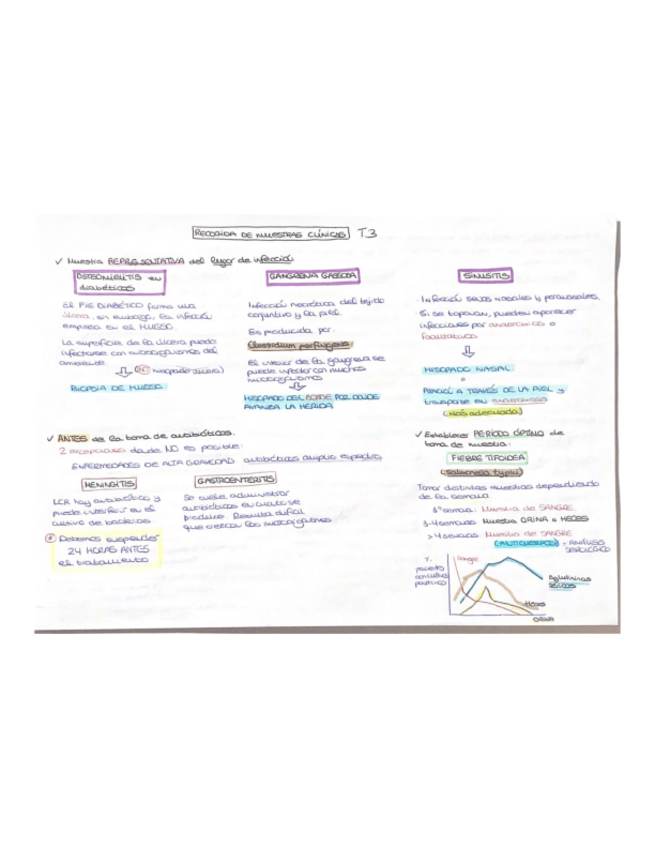 RECOGIDA DE MUESTRAS CLÍNICAS T3
✓ Muestra REPRESENTATIVA del lugar de infección.
OSTEOMIELITIS en
diabéticos
El PIE DIABÉTICO forma una
úlcera, sin embargo, la infección
empieza en el HUESO.
La superficie de la úlcera puede
infectarse con microorganismos del
ambiente.
(NO hisopado úlcera)
BIOPSIA DE HUESO.
GANGRENA GASEOSA
Infección necrótica del tejido
conjuntivo y la piel.
Es producida por:
Clostridium perfringens
El interior de la gangrena se
puede infectar con muchos
microorganismos
HISOPADO DEL BORDE POR DONDE
AVANZA LA HERIDA
SINUSITIS
Infección senos nasales y paranasales.
Si se taponan, pueden aparecer
infecciones por anaerobios o
facultativos
HISOPADO NASAL
o
PUNCIÓ A TRAVÉS DE LA PIEL y
transporte en anaerobiosis
(más adecuada)
✓ ANTES de la toma de antibióticos.
2 excepciones donde NO es posible:
ENFERMEDADES DE ALTA GRAVEDAD antibióticos amplio espectro
MENINGITIS
LCR hay antibiótico y
puede interferir en el
cultivo de bacterias
* Debemos suspender
24 HORAS ANTES
el tratamiento
GASTROENTERITIS
Se suele administrar
antibióticos en cuanto se
produce. Resulta difícil
que crezcan los microorganismos
✓ Establecer PERÍODO ÓPTIMO de
toma de muestra.
FIEBRE TIFOIDEA
(Salmonella typhi)
Tomar distintas muestras dependiendo
de la semana
1ª semana: Muestra de SANGRE
3-4 semanas Muestra ORINA o HECES
>4 semanas Muestra de SANGRE
(ANTICUERPOS) = ANÁLISIS
SEROLÓGICO
%
pacientes
con cultivo
positivo
Sangre
Aglutininas
Heces
ORINA